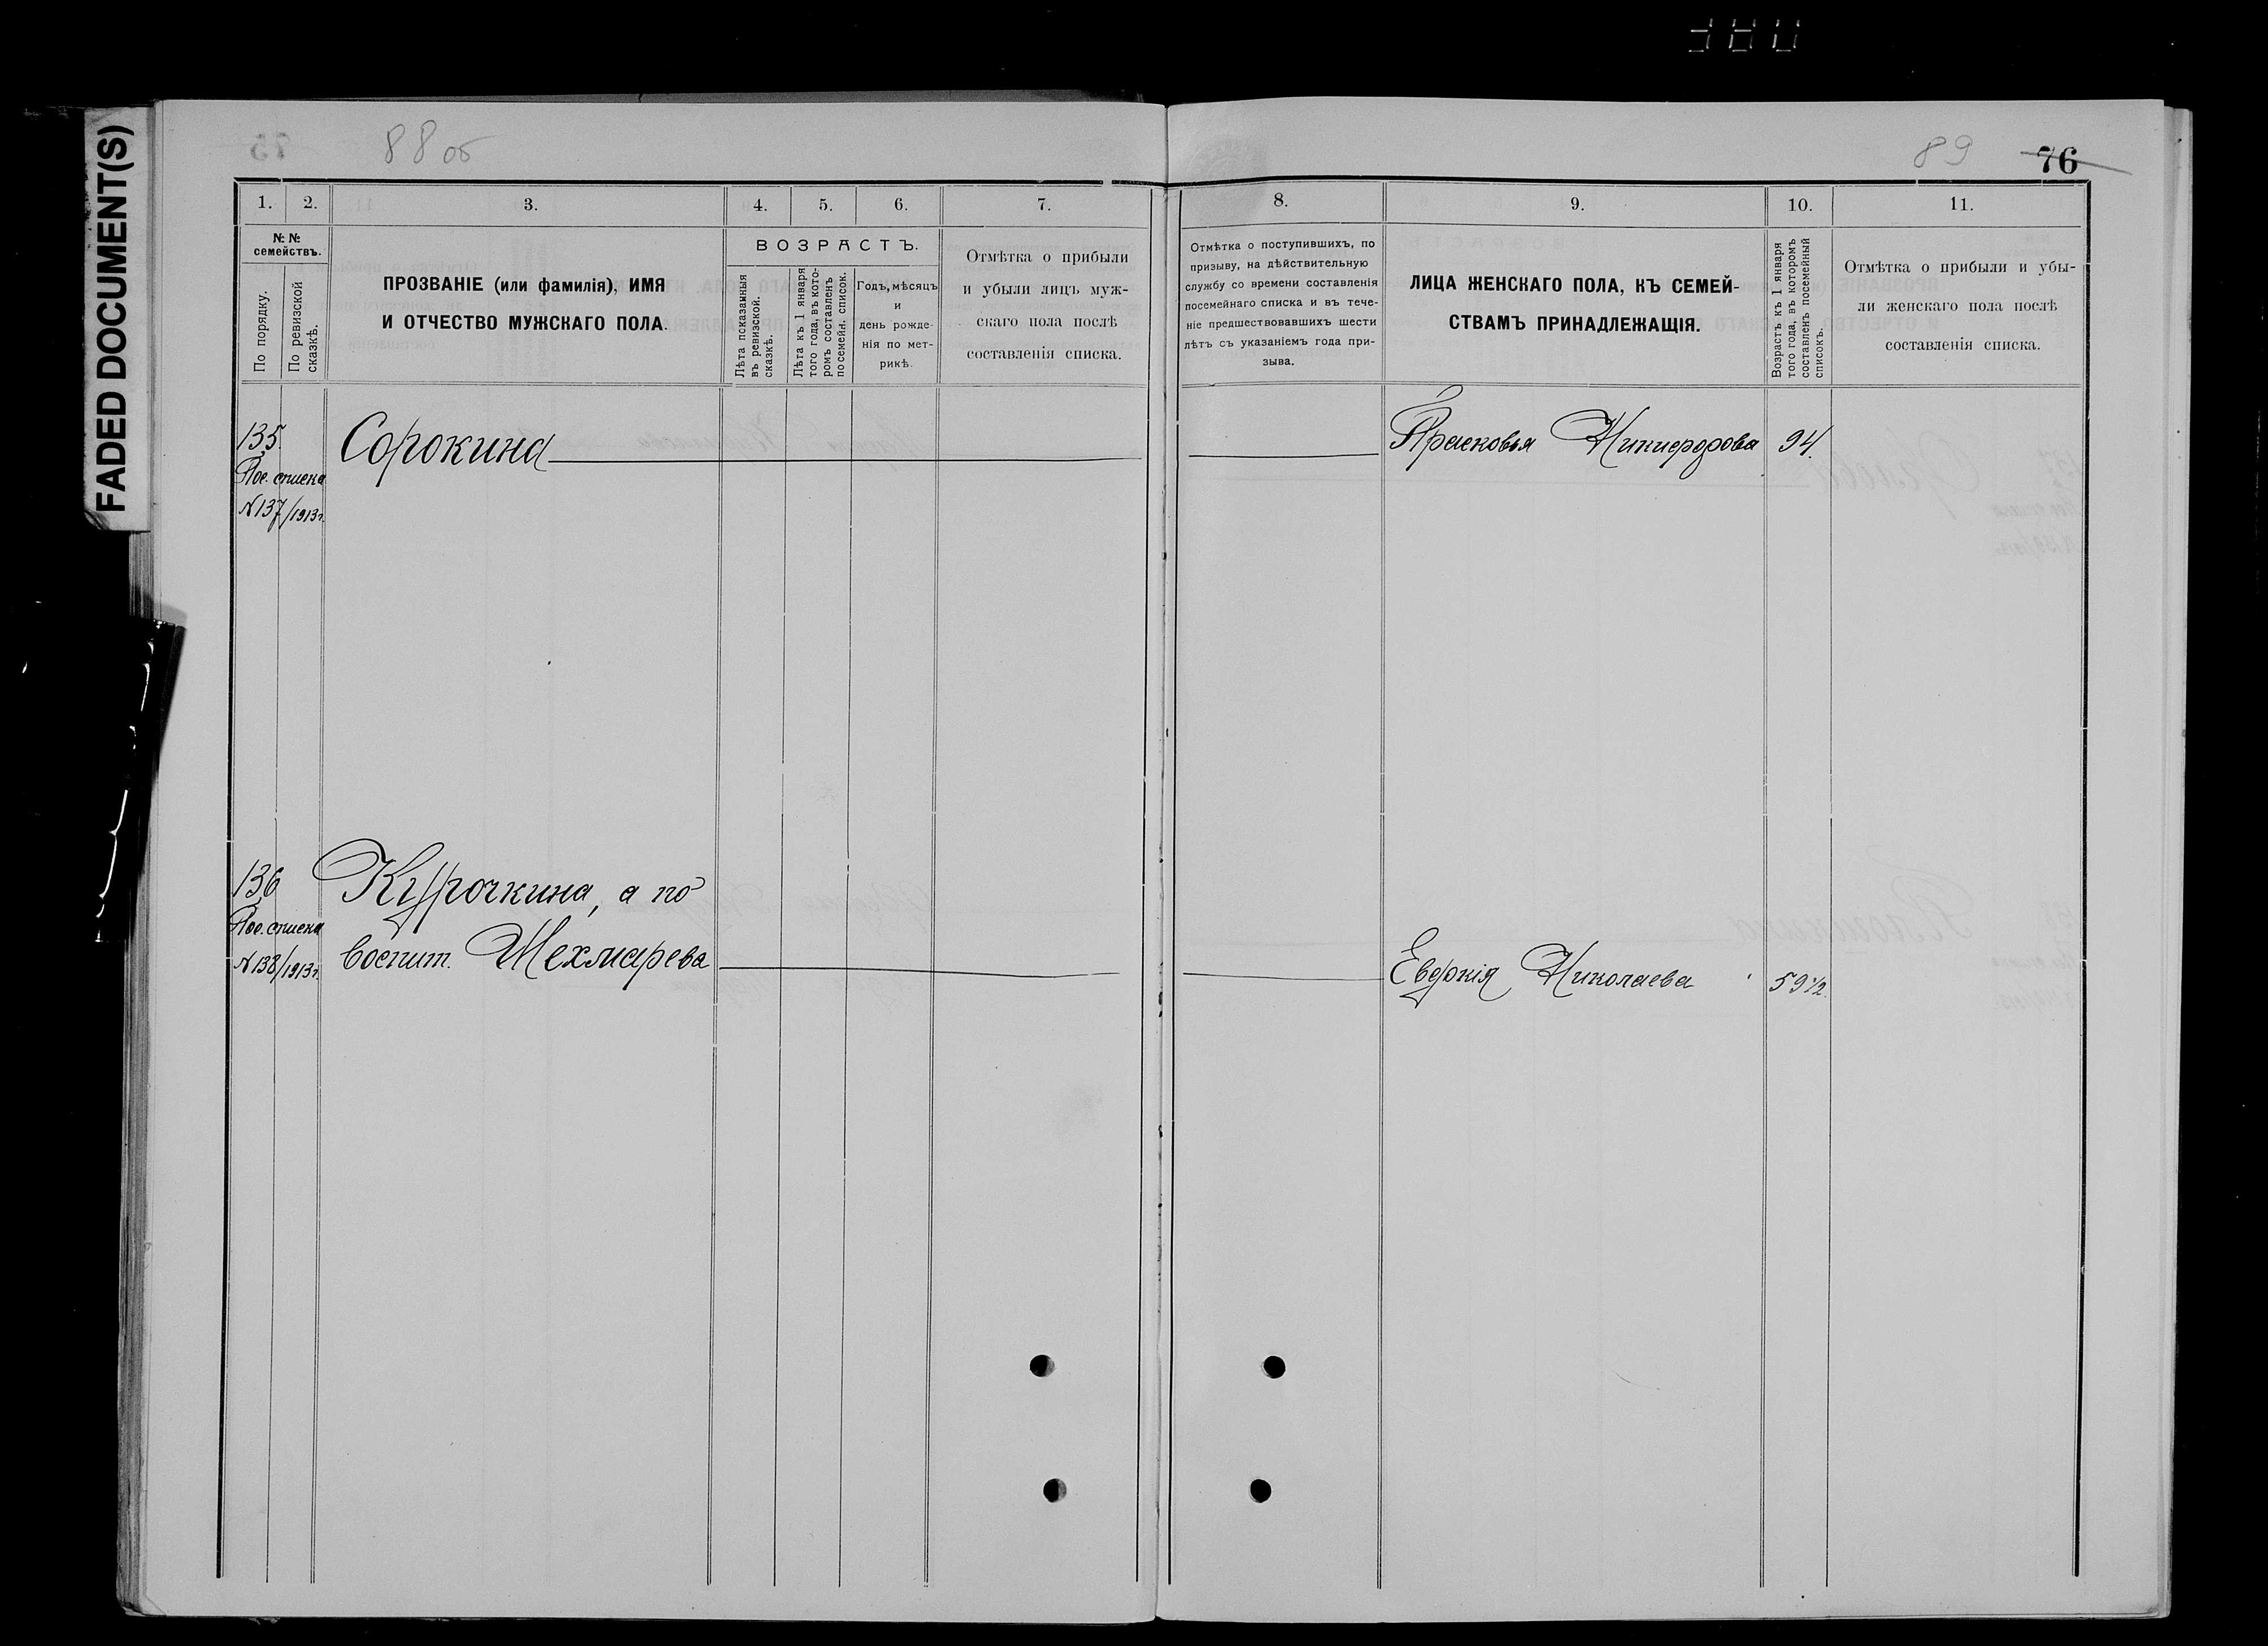 FADED DOCUMENT(S)
88 об
89 76
1. 2. 3. 4. 5. 6. 7.
№ №
семействъ.
По порядку.
По ревизской
сказкѣ.
ПРОЗВАНІЕ (или фамилія), ИМЯ
И ОТЧЕСТВО МУЖСКАГО ПОЛА.
ВОЗРАСТЪ.
Лѣта показанныя
въ ревизской.
сказкѣ.
Лѣта къ 1 января
того года, въ кото-
ромъ составленъ
посемейн. список.
Годъ, мѣсяцъ
и
день рожде-
нія по мет-
рикѣ.
Отмѣтка о прибыли
и убыли лицъ муж-
скаго пола послѣ
составленія списка.
135.
Пос. списка
N 137/1913г.
Сорокина
136
Пос. списка
N 138/1913г.
Курочкина, а по
воспит. Мехмарева
8. 9. 10. 11.
Отмѣтка о поступившихъ, по
призыву, на дѣйствительную
службу со времени составленія
посемейнаго списка и въ тече-
ніе предшествовавшихъ шести
лѣтъ съ указаніемъ года при-
зыва.
ЛИЦА ЖЕНСКАГО ПОЛА, КЪ СЕМЕЙ-
СТВАМЪ ПРИНАДЛЕЖАЩІЯ.
Возрастъ къ 1 января
того года, въ которомъ
составленъ посемейный
списокъ.
Отмѣтка о прибыли и убы-
ли женскаго пола послѣ
составленія списка.
Прасковья Никифорова 94.
Евдокія Николаева 59 1/2.